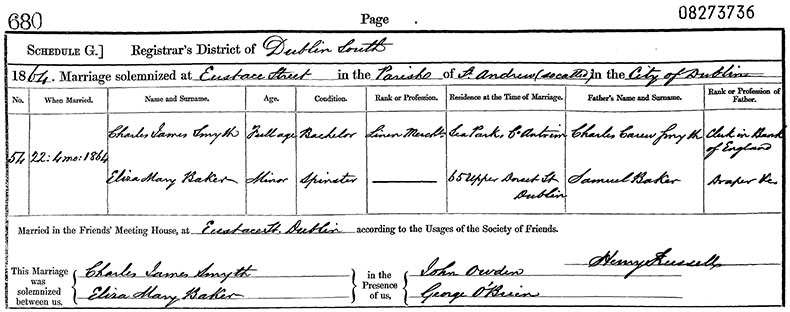 680 Page 08273736
SCHEDULE G.] Registrar's District of Dublin South
1864. Marriage solemnized at Eustace Street in the Parish of St. Andrew (so called) in the City of Dublin
No. When Married. Name and Surname. Age. Condition. Rank or Profession. Residence at the Time of Marriage. Father's Name and Surname. Rank or Profession of Father.
54 22: 4mo: 1864
Charles James Smyth Full age Bachelor Linen Mercht. Sea Park, Co Antrim Charles Carew Smyth Clerk in Bank of England
Eliza Mary Baker Minor Spinster 65 Upper Dorset St Dublin Samuel Baker Draper &c
Married in the Friends' Meeting House, at Eustace St. Dublin according to the Usages of the Society of Friends.
Henry Russell
This Marriage was solemnized between us, { Charles James Smyth } in the Presence of us, { John Owden
Eliza Mary Baker George O'Brien